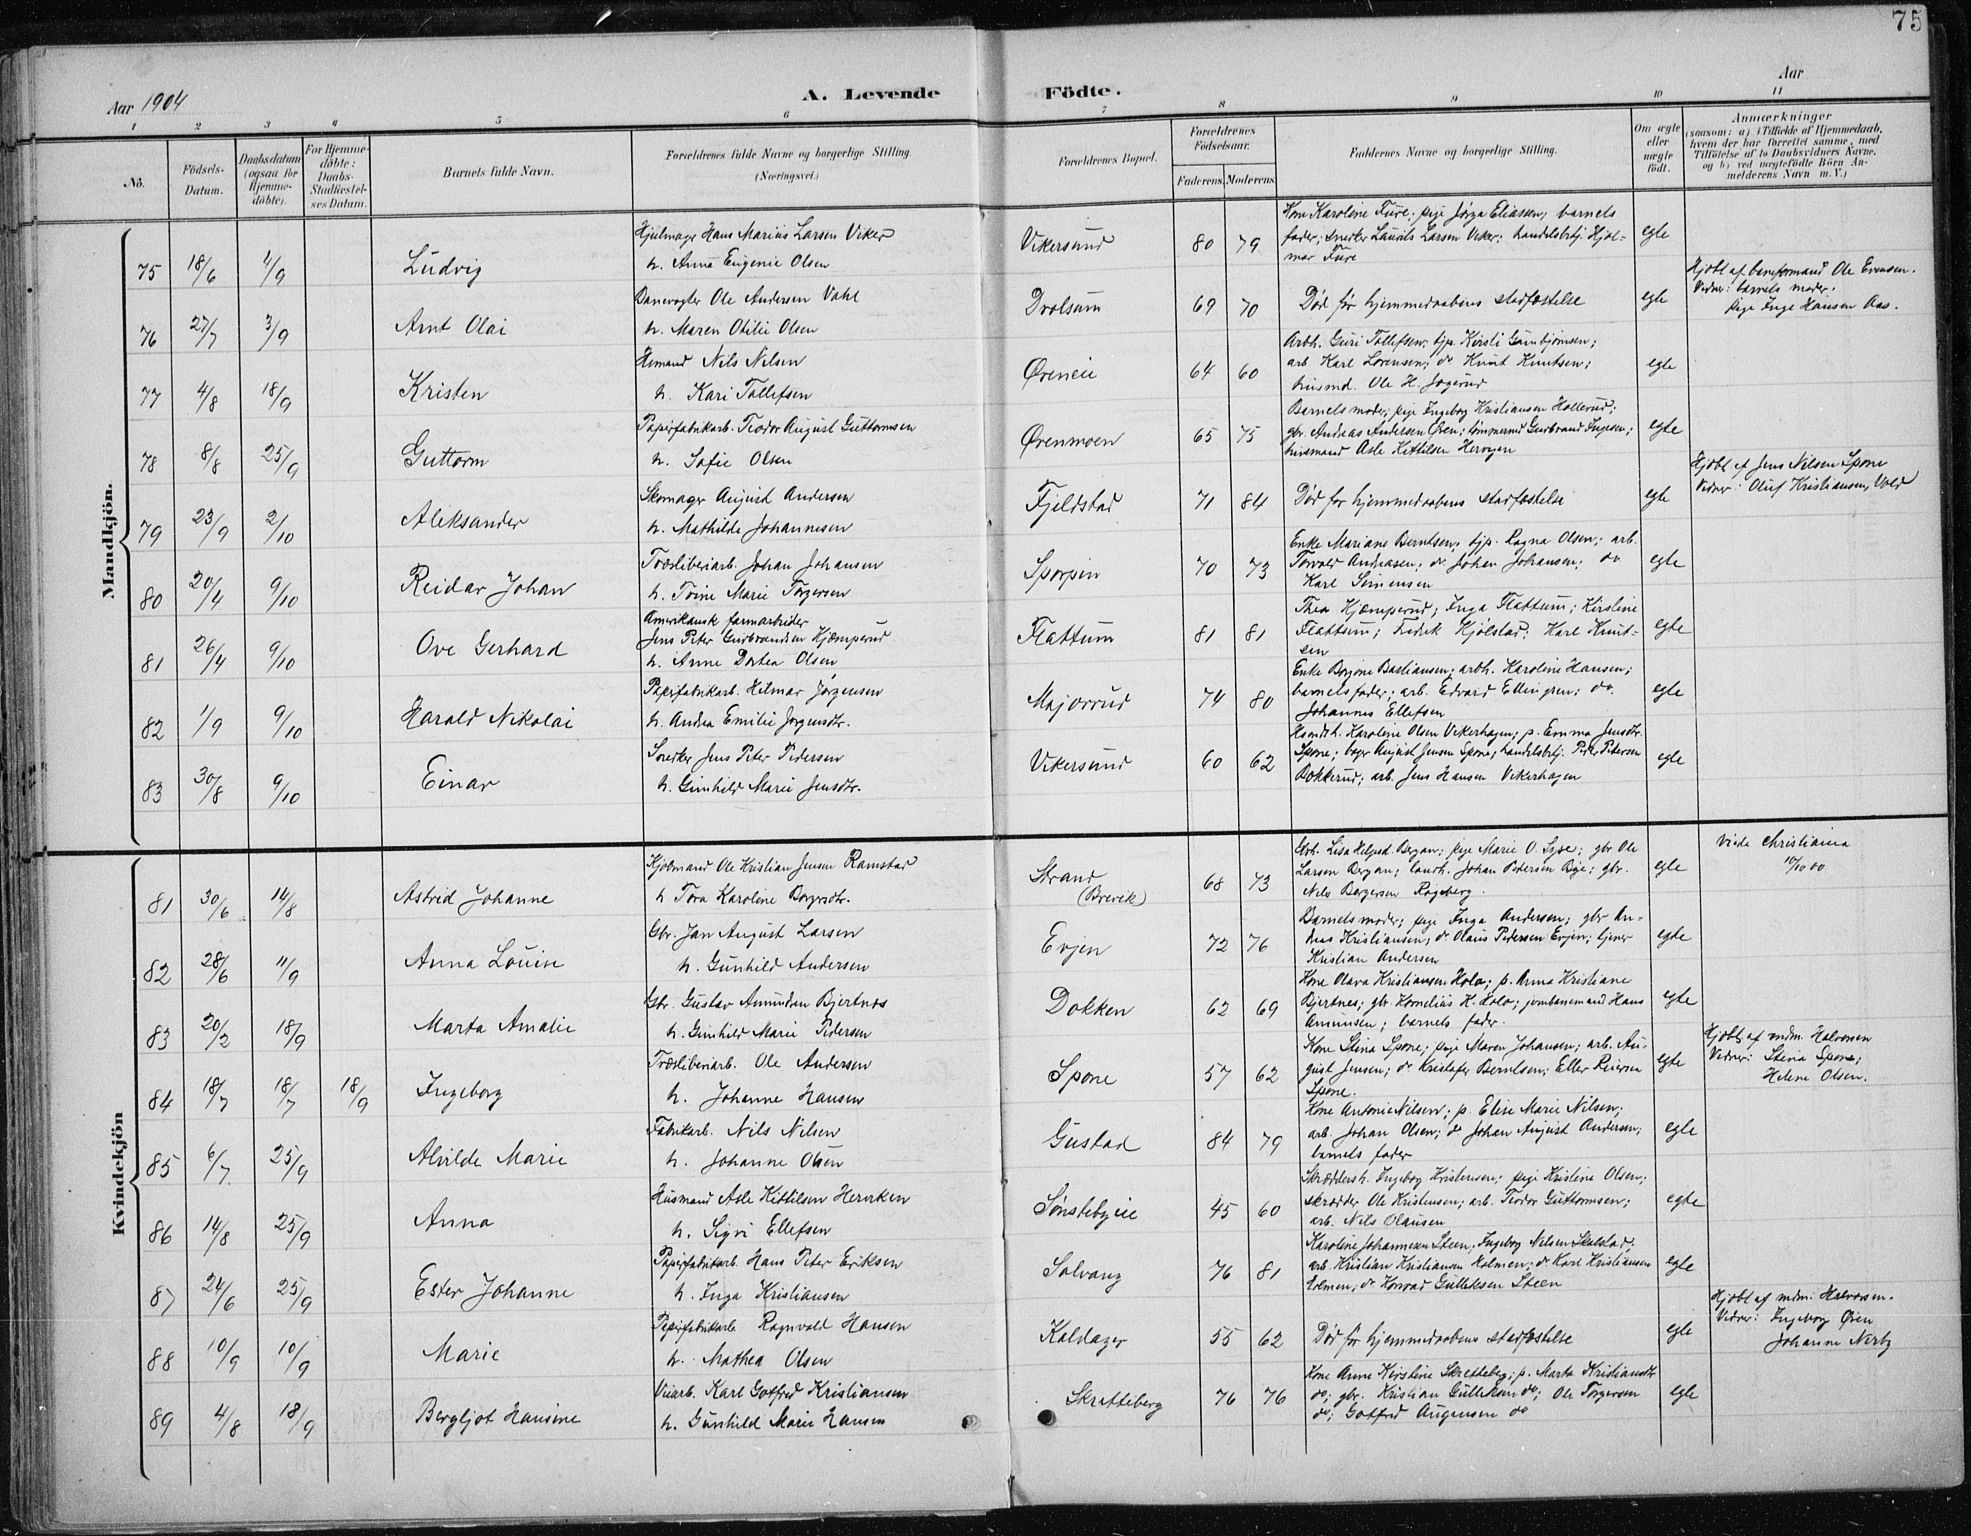 75
Aar 1904
A. Levende
Födte.
Aar
1 2 3 4 5 6 7 8 9 10 11
No.
Födsels-
Datum.
Daabsdatum
(ogsaa for
Hjemme-
döbte).
For Hjemme-
döbte:
Daabs-
Stadfæstel-
ses Datum.
Barnets fulde Navn.
Forældrenes fulde Navne og borgerlige Stilling.
(Næringsvei.)
Forældrenes Bopæl.
Forældrenes
Födselsaar.
Faderens. Moderens.
Faddernes Navne og borgerlige Stilling.
Om ægte
eller
uægte
födt.
Anmærkninger
(saasom: a) i Tilfælde af Hjemmedaab,
hvem der har forrettet samme, med
Tilföielse af to Daabsvidners Navne,
og b) ved uægtefödte Börn An-
melderens Navn m. V.)
Mandkjön.
75 18/6 4/9 Ludvig
Hjulmager Hans Marius Larsen Viker
h. Anna Eugenie Olsen
Vikersund 80 79
Kone Karoline Fure; pige Jørga Eliassen; barnets
fader; snedker Laurits Larsen Viker; handelsbtj. Hjal-
mar Fure
egte
76 27/7 3/9 Arnt Olai
Banevogter Ole Andersen Vahl
h. Maren Otilie Olsen
Drolsum 69 70
Død før hjemmedaabens stadfæstelse
egte
Hjdbt af baneformand Ole Evensen.
Vidner: barnets moder.
pige Inga Hansen Aas.
77 4/8 18/9 Kristen
Hsmand Nils Nilsen
h. Kari Tollefsen
Øreneie 64 60
Arbh. Guri Tollefsen; tjp. Kirsti Gunbjørnsen;
arb. Karl Lorensen; do Knut Knutsen;
husmd. Ole H. Jogerud
egte
78 8/8 25/9 Guttorm
Papirfabrikarb. Teodor August Guttormsen
h. Sofie Olsen
Ørenmoen 65 75
Barnets moder; pige Ingeborg Kristiansen Hollerud;
gbr. Andreas Andersen Øren; tømmermd Gulbrand Jupsen;
husmand Asle Kittilsen Hervijen
egte
79 23/9 2/10 Aleksander
Skomager August Andersen
h. Mathilde Johannesen
Fjeldstad 71 84
Død før hjemmedaabens stadfæstelse
egte
Hjdbt af Jens Nilsen Spone
Vidner: Oluf Kristiansen, Vold
80 20/4 9/10 Reidar Johan
Træsliberiarb. Johan Johansen
h. Trine Marie Torgersen
Sporpin 70 73
Enke Mariane Berntsen; tjp. Ragna Olsen; arb.
Torvald Andreasen; do Johan Johansen; do
Karl Simensen
egte
81 26/4 9/10 Ove Gerhard
Amerikansk farmarbeider
Jens Peter Gulbrandsen Hjæmperud
h. Anne Dortea Olsen
Flattum 81 81
Thea Hjæmperud; Inga Flattum; Kirstine
Flattum; Fredrik Hjølstad; Karl Knut-
sen
egte
82 1/9 9/10 Harald Nikolai
Papirfabrikarb. Hilmar Jørgensen
h. Andrea Emilie Jørgensdtr.
Majorrud 74 80
Enke Birgine Bastiansen; arbh. Karoline Hansen;
barnets fader; arb. Edvard Ellingren; do.
Johannes Ellefsen
egte
83 30/8 9/10 Einar
Snedker Jens Peter Pedersen
h. Gunhild Marie Jensdtr.
Vikersund 60 62
Hsmdh. Karoline Olsen Vikerhagen; p. Emma Jensdtr.
Spone; bager August Jensen Spone; handelsbtj. Peter Petersen
Bokkerud; arb. Jens Hansen Vikerhagen
egte
Kvindekjön
81 30/6 14/8 Astrid Johanne
Kjøbmand Ole Kristian Jensen Ramstad
h Tora Karoline Borgersdtr.
Strand
(Brevik)
68 73
Gbh. Lisa Helged. Bergan; pige Marie O. Lyse; gbr Ole
Larsen Bergan; landh. Johan Petersen Bye; gbr.
Nils Borgersen Rogeberg.
egte
viede Christiania
10/10 00
82 28/6 11/9 Anna Louise
Gbr. Jan August Larsen
h. Gunhild Andersen
Evjen 72 76
Barnets moder; pige Inga Andersen; gbr An-
dreas Kristiansen; do Olaus Pedersen Evjen; tjener
Kristian Andersen
egte
83 20/2 18/9 Marta Amalie
Gbr. Gustav Amundsen Bjertnæs
h. Gunhild Marie Pedersen
Dokken 62 69
Kone Olava Kristiansen Holo; p. Anna Kristiane
Bjertnes; gbr Kornelius H. Holo; jernbanemand Hans
Amunsen; barnets fader.
egte
84 18/7 18/7 18/9 Ingeborg
Træsliberiarb. Ole Andersen
h. Johanne Hansen
Spone 57 62
Kone Stina Spone; pige Maren Johansen; arb. Au-
gust Jensen; do Kristofer Berntsen; Eller Reiersen
Spone.
egte
Hjdbt. af mdm. Halvorsen
Vidner: Stina Spone;
Helene Olsen.
85 6/7 25/9 Alvilde Marie
Fabrikarb. Nils Nilsen
h. Johanne Olsen
Gustad 84 79
Kone Antonie Nilsen; p. Elise Marie Nilsen;
arb. Johan Olsen; do Johan August Andersen;
barnets fader
egte
86 14/8 25/9 Anna
Husmand Asle Kittilsen Herviken
h. Sigri Ellefsen
Sønstebyeie 45 60
Skrædderh. Ingeborg Kristensen; pige Kristine Olsen;
skrædder Ole Kristensen; arb. Teodor Guttormsen;
arb. Nils Olausen
egte
87 24/6 25/9 Ester Johanne
Papirfabrikarb. Hans Peter Eriksen
h. Inga Kristiansen
Solvang 76 81
Karoline Johannesen Steen; Ingeborg Nilsen Skalstad;
arb. Kristian Kristiansen Holmen; do Karl Kristiansen
Holmen; do Konrad Gulleksen Steen
egte
88 10/9 10/9 Marie
Papirfabrikarb. Ragnvald Hansen
h. Mathea Olsen
Kaldager 55 62
Død før hjemmedaabens stadfæstelse
egte
Hjdbt af mdm. Halvorsen.
Vidner: Ingeborg Øren
Johanne Nerby
89 4/8 18/9 Bergljot Hansine
Veiarb. Karl Gotfred Kristiansen
h. Gunhild Marie Hansen
Skratteberg 76 76
Kone Anne Kirstine Skretteberg; p. Marta Kristiansdtr
do; gbr. Kristian Gulleksen do; Ole Torgersen
do; Gotfred Augensen do
egte